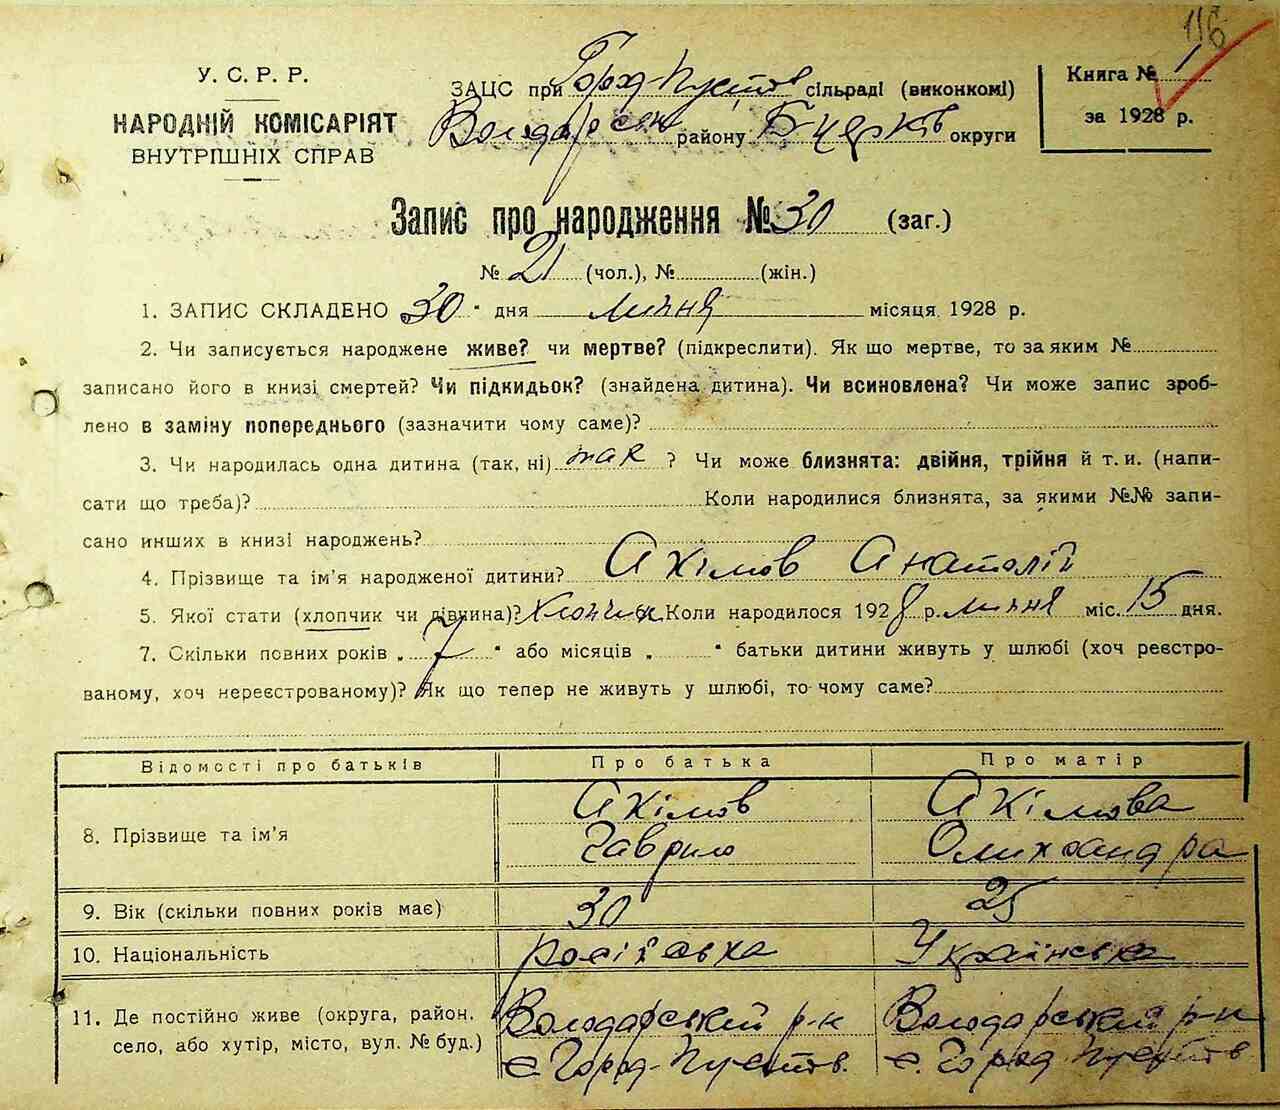 116
У. С. Р. Р.
НАРОДНІЙ КОМІСАРІЯТ
ВНУТРІШНІХ СПРАВ
ЗАЦС при Город-Пустов сільраді (виконкомі)
Володарськ району Б-Церків округи
Книга № 1
за 1928 р.
Запис про народження № 30 (заг.)
№ 21 (чол.), № (жін.)
1. ЗАПИС СКЛАДЕНО 30 " дня липня місяця 1928 р.
2. Чи записується народжене живе? чи мертве? (підкреслити). Як що мертве, то за яким №
записано його в книзі смертей? Чи підкидьок? (знайдена дитина). Чи всиновлена? Чи може запис зроб-
лено в заміну попереднього (зазначити чому саме)?
3. Чи народилась одна дитина (так, ні) так ? Чи може близнята: двійня, трійня й т. и. (напи-
сати що треба)? Коли народилися близнята, за якими №№ запи-
сано инших в книзі народжень?
4. Прізвище та ім'я народженої дитини? Акімов Анатолій
5. Якої стати (хлопчик чи дівчина)? Хлопчик Коли народилося 1928 р. липня міс. 15 дня.
7. Скільки повних років „ 7 " або місяців „ " батьки дитини живуть у шлюбі (хоч реєстро-
ваному, хоч нереєстрованому)? Як що тепер не живуть у шлюбі, то чому саме?
Відомості про батьків Про батька Про матір
8. Прізвище та ім'я Акімов Гаврило Акімова Олександра
9. Вік (скільки повних років має) 30 25
10. Національність російська Українська
11. Де постійно живе (округа, район, Володарський р-н Володарський р-н
село, або хутір, місто, вул. № буд.) с. Город-Пустов. с. Город-Пустов